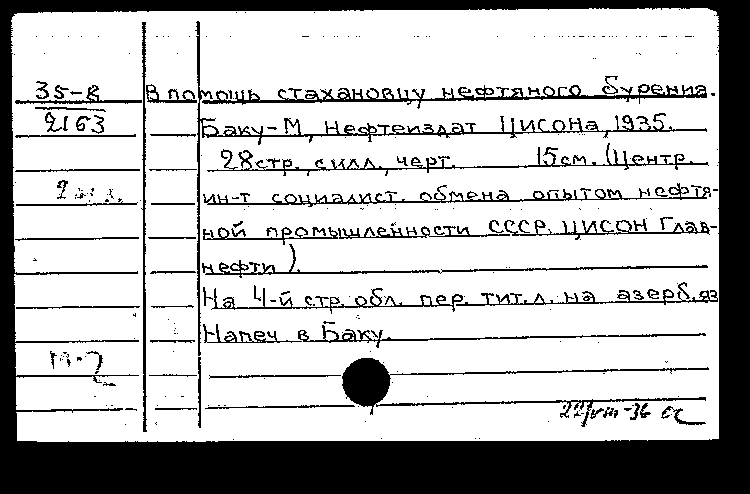 35-8 В помощь стахановцу нефтяного бурения.
2163 Баку-М, Нефтеиздат ЦИСОНа, 1935.
28стр. с илл., черт. 15см. (Центр.
ин-т социалист. обмена опытом нефтя-
ной промышленности СССР. ЦИСОН Глав-
нефти).
На 4-й стр. обл. пер. тит.л. на азерб.яз
Напеч в Баку.
М-2
22/VIII-36